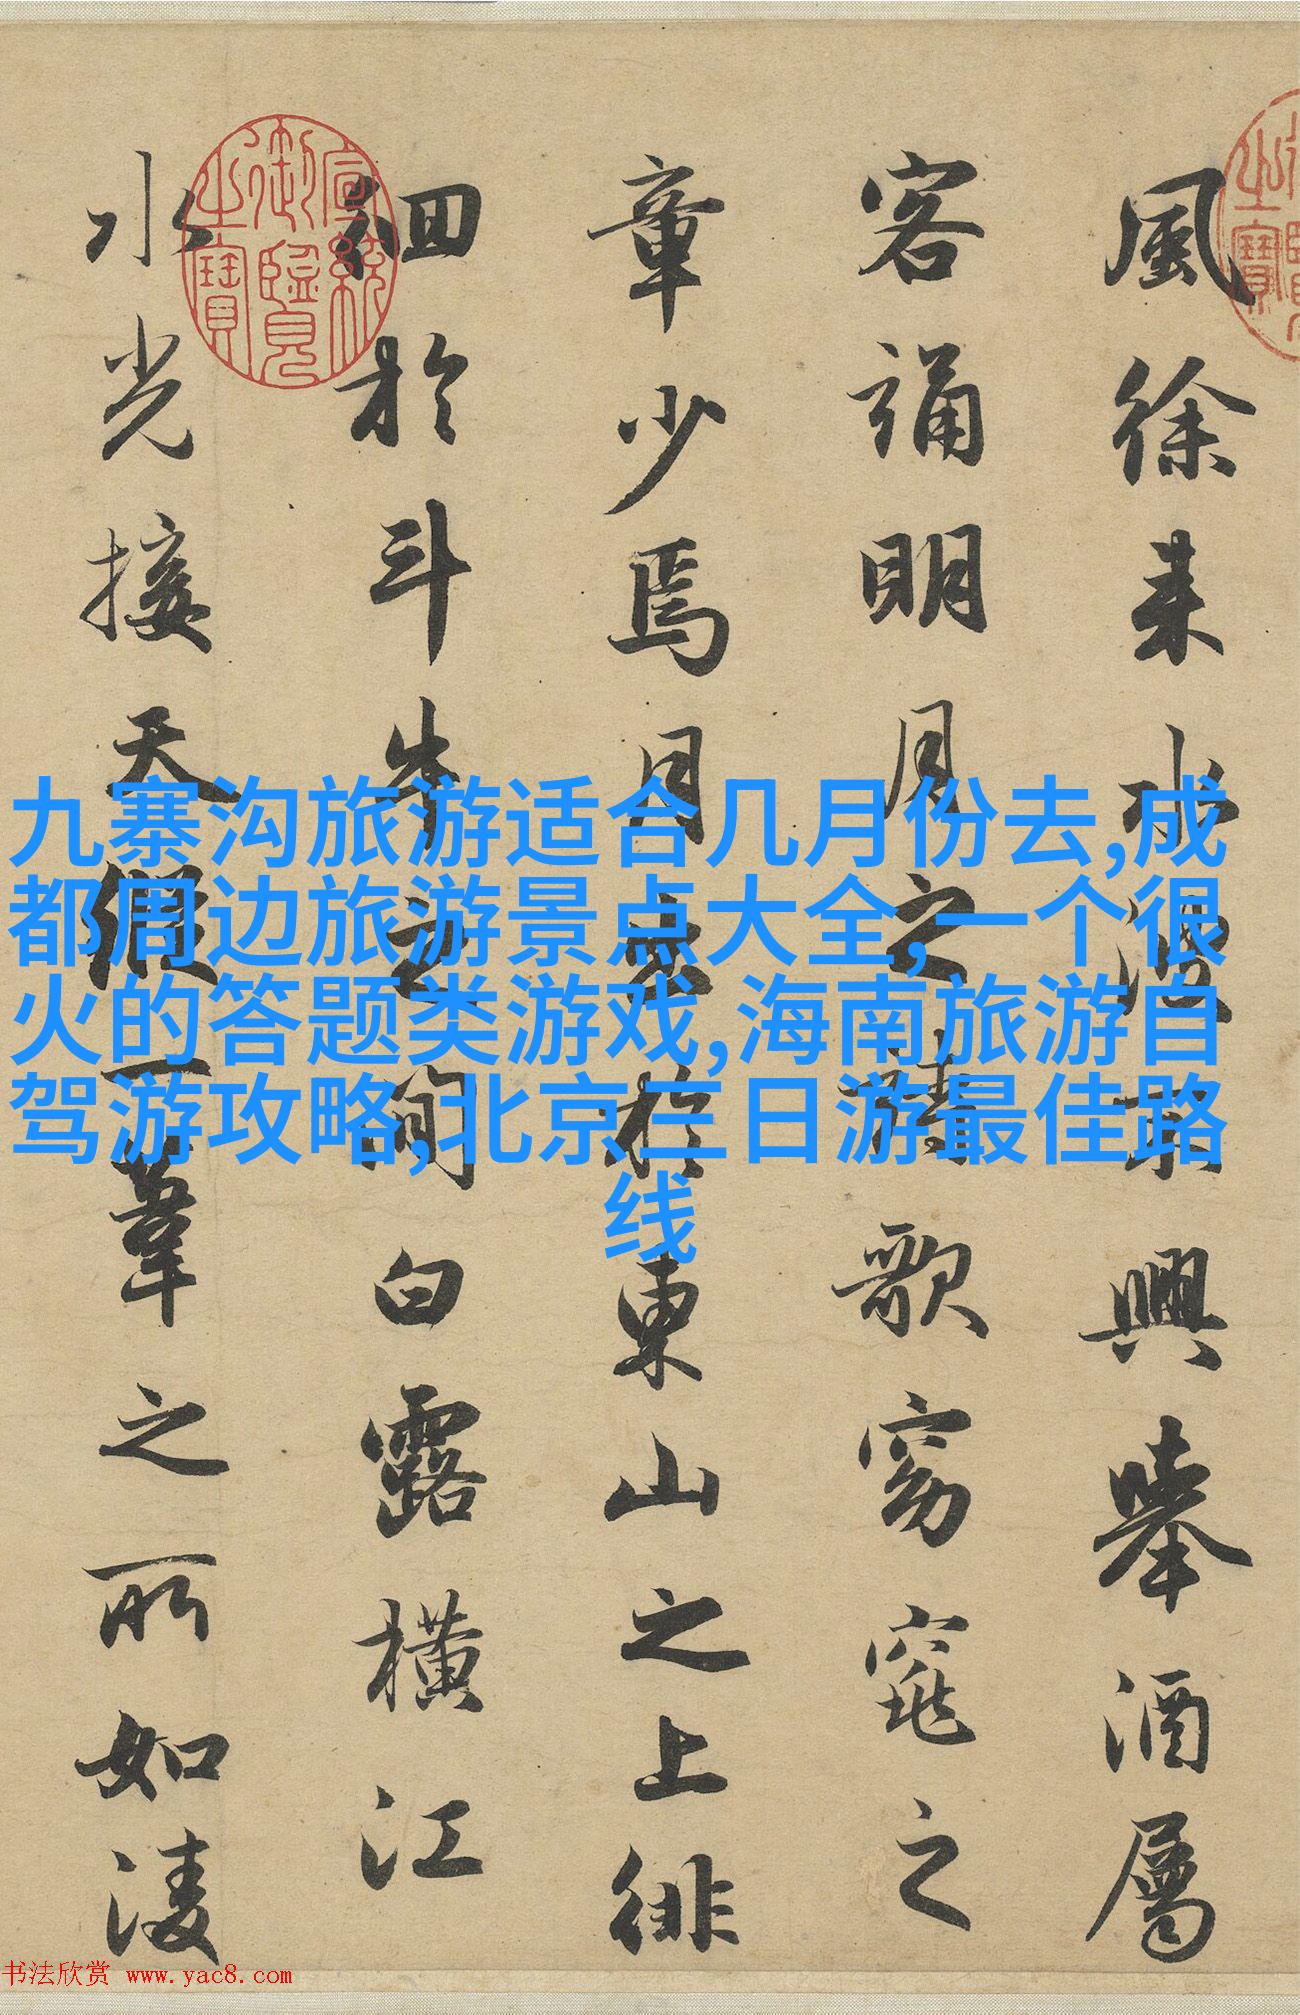 風徐来水波不興舉酒屬
客誦明月之詩歌窈窕之
章少焉月出於東山之上徘
徊於斗牛之間白露橫江
水光接天縱一葦之所如凌
宣統御覽之寶
九寨沟旅游适合几月份去,成
都周边旅游景点大全,一个很
火的答题类游戏,海南旅游自
驾游攻略,北京三日游最佳路
线
书法欣赏 www.yac8.com